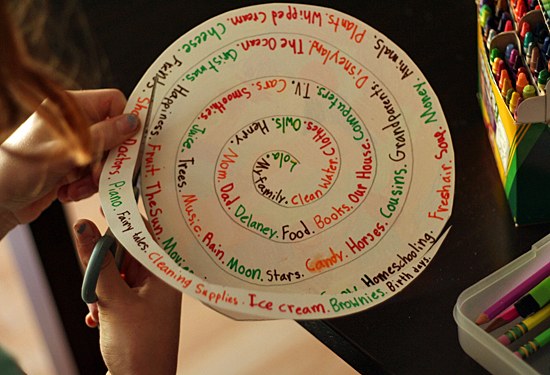 Lola.
My family. Clean Water. Clothes. Owls. Henry.
Mom. Dad. Delaney. Food. Books. Our House. Computers. T.V. Cars. Smoothies. Juice.
Trees. Music. Rain. Moon. Stars. Candy. Horses. Cousins. Grandparents. Disneyland. The Ocean. Christmas. Happiness.
Fruit. The Sun. Homeschooling. Fresh air. Soap. Money. Animals. Plants. Whipped Cream. Cheese. Friends.
Doctors. Piano. Fairy tales. Cleaning Supplies. Ice cream. Brownies. Birth days.